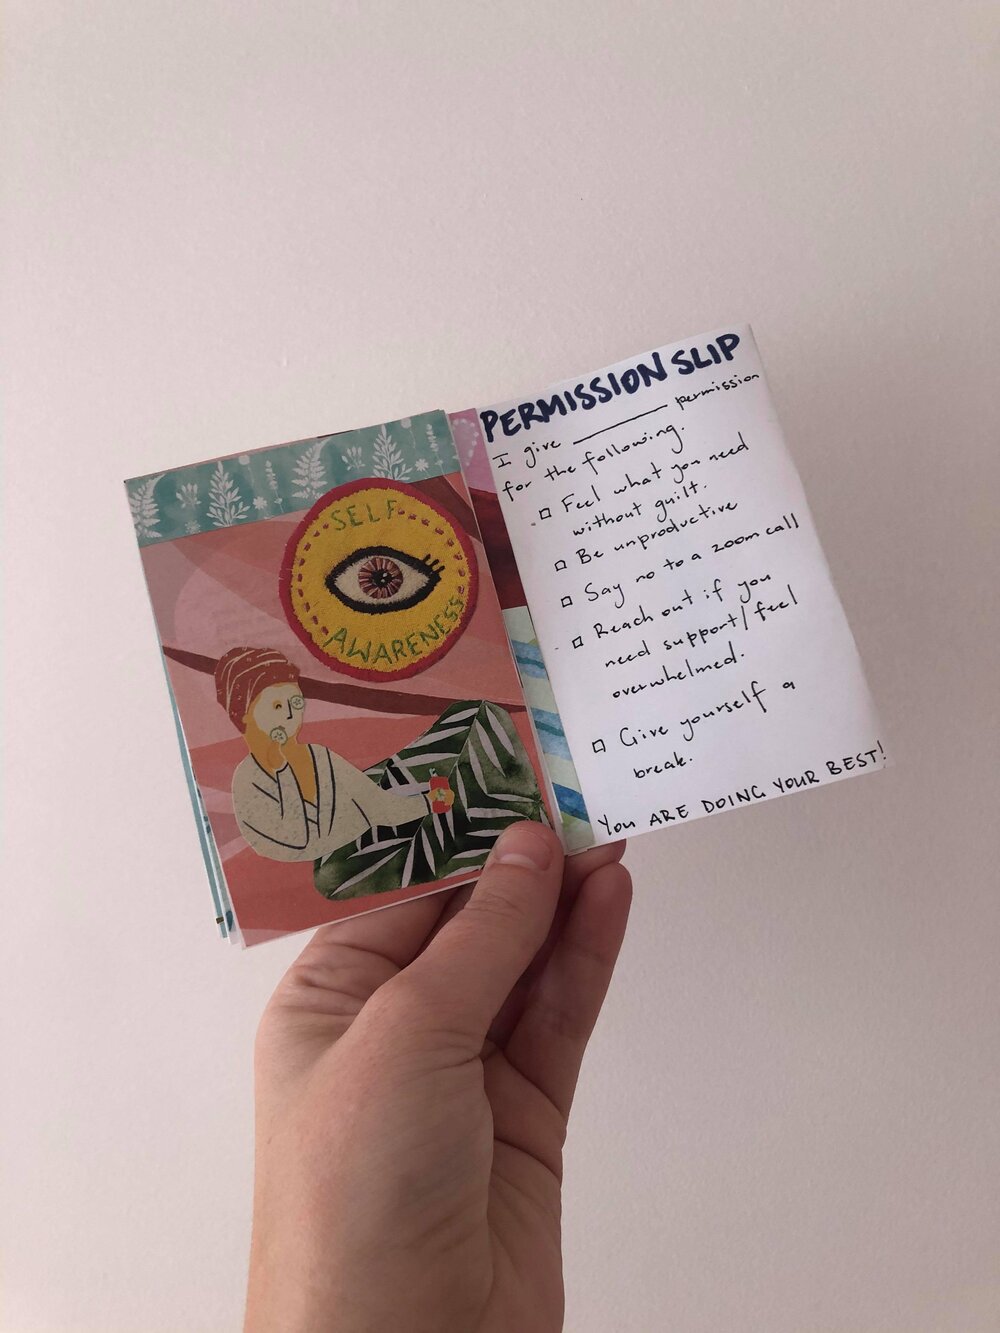 SELF
AWARENESS
PERMISSION SLIP
I give ________ permission
for the following.
□ Feel what you need
without guilt.
□ Be unproductive
□ Say no to a zoom call
□ Reach out if you
need support/feel
overwhelmed.
□ Give yourself a
break.
YOU ARE DOING YOUR BEST!